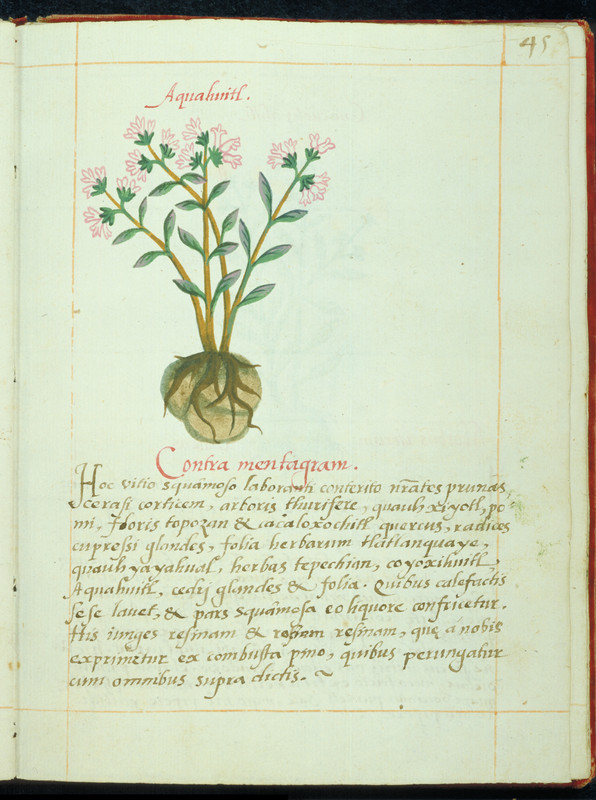 45
Aquahuitl.
Contra mentagram.
Hoc vitio squamoso laboranti conterito nr̃ates prunas,
cerasi corticem, arboris thurifere, quauh xiyotl, po-
mi, floris topozan & cacaloxochitl quercus, radices
cupressi glandes, folia herbarum tlatlanquaye,
quauh yayahual, herbas tepechian, coyoxihuitl,
Aquahuitl, cedrj glandes & folia. Quibus calefactis
sese lavet, & pars squamosa eo liquore confricetur.
His iunges resinam & resinam, quę a nobis
exprimitur ex combusta pino, quibus perungatur
cum omnibus supra dictis. ~